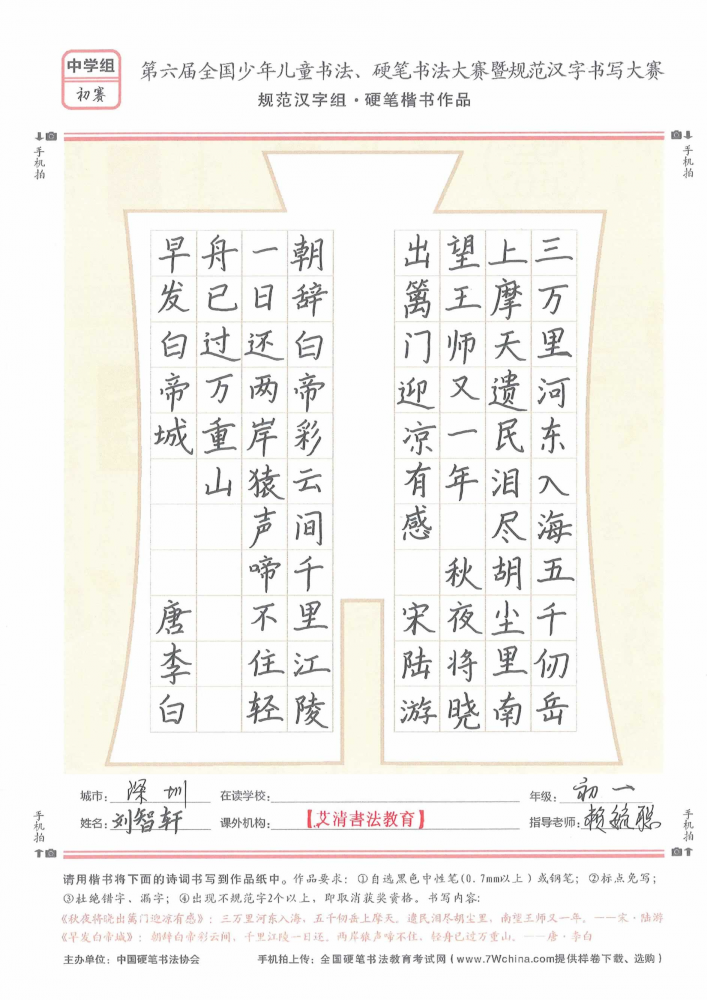 中学组
初赛
第六届全国少年儿童书法、硬笔书法大赛暨规范汉字书写大赛
规范汉字组·硬笔楷书作品
手机拍
手机拍
三万里河东入海五千仞岳
上摩天遗民泪尽胡尘里南
望王师又一年 秋夜将晓
出篱门迎凉有感 宋陆游
朝辞白帝彩云间千里江陵
一日还两岸猿声啼不住轻
舟已过万重山
早发白帝城 唐李白
城市：深圳 在读学校： 年级：初一
姓名：刘智轩 课外机构：【艾清書法教育】 指导老师：赖毓聪
手机拍
手机拍
请用楷书将下面的诗词书写到作品纸中。作品要求：①自选黑色中性笔(0.7mm以上)或钢笔；②标点免写；
③杜绝错字、漏字；④出现不规范字2个以上，即取消获奖资格。书写内容：
《秋夜将晓出篱门迎凉有感》：三万里河东入海，五千仞岳上摩天。遗民泪尽胡尘里，南望王师又一年。——宋·陆游
《早发白帝城》：朝辞白帝彩云间，千里江陵一日还。两岸猿声啼不住，轻舟已过万重山。——唐·李白
主办单位：中国硬笔书法协会 手机拍上传：全国硬笔书法教育考试网（www.7Wchina.com提供样卷下载、选购）